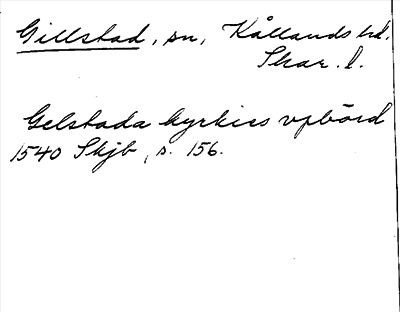 Gillstad, sn, Kållands hd.
Skar. l.
Gelstada kyrkies vpbörd
1540 Skjb, s. 156.